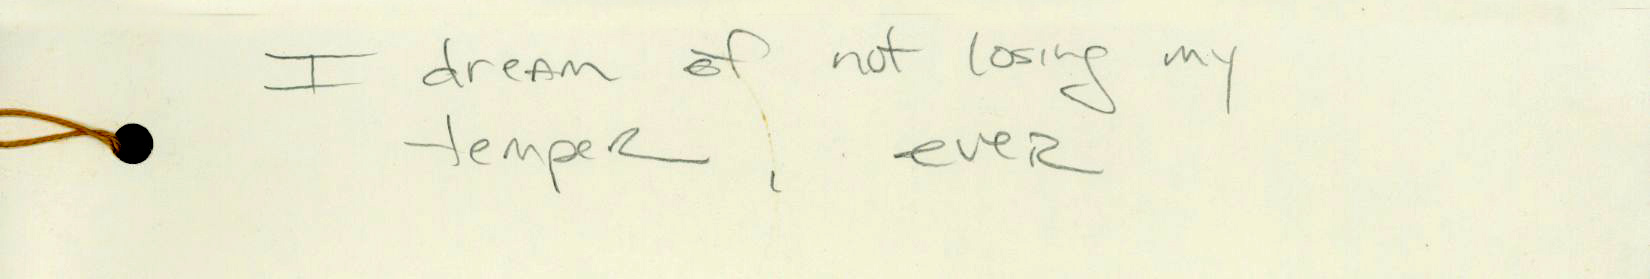 I dream of not losing my
temper, ever